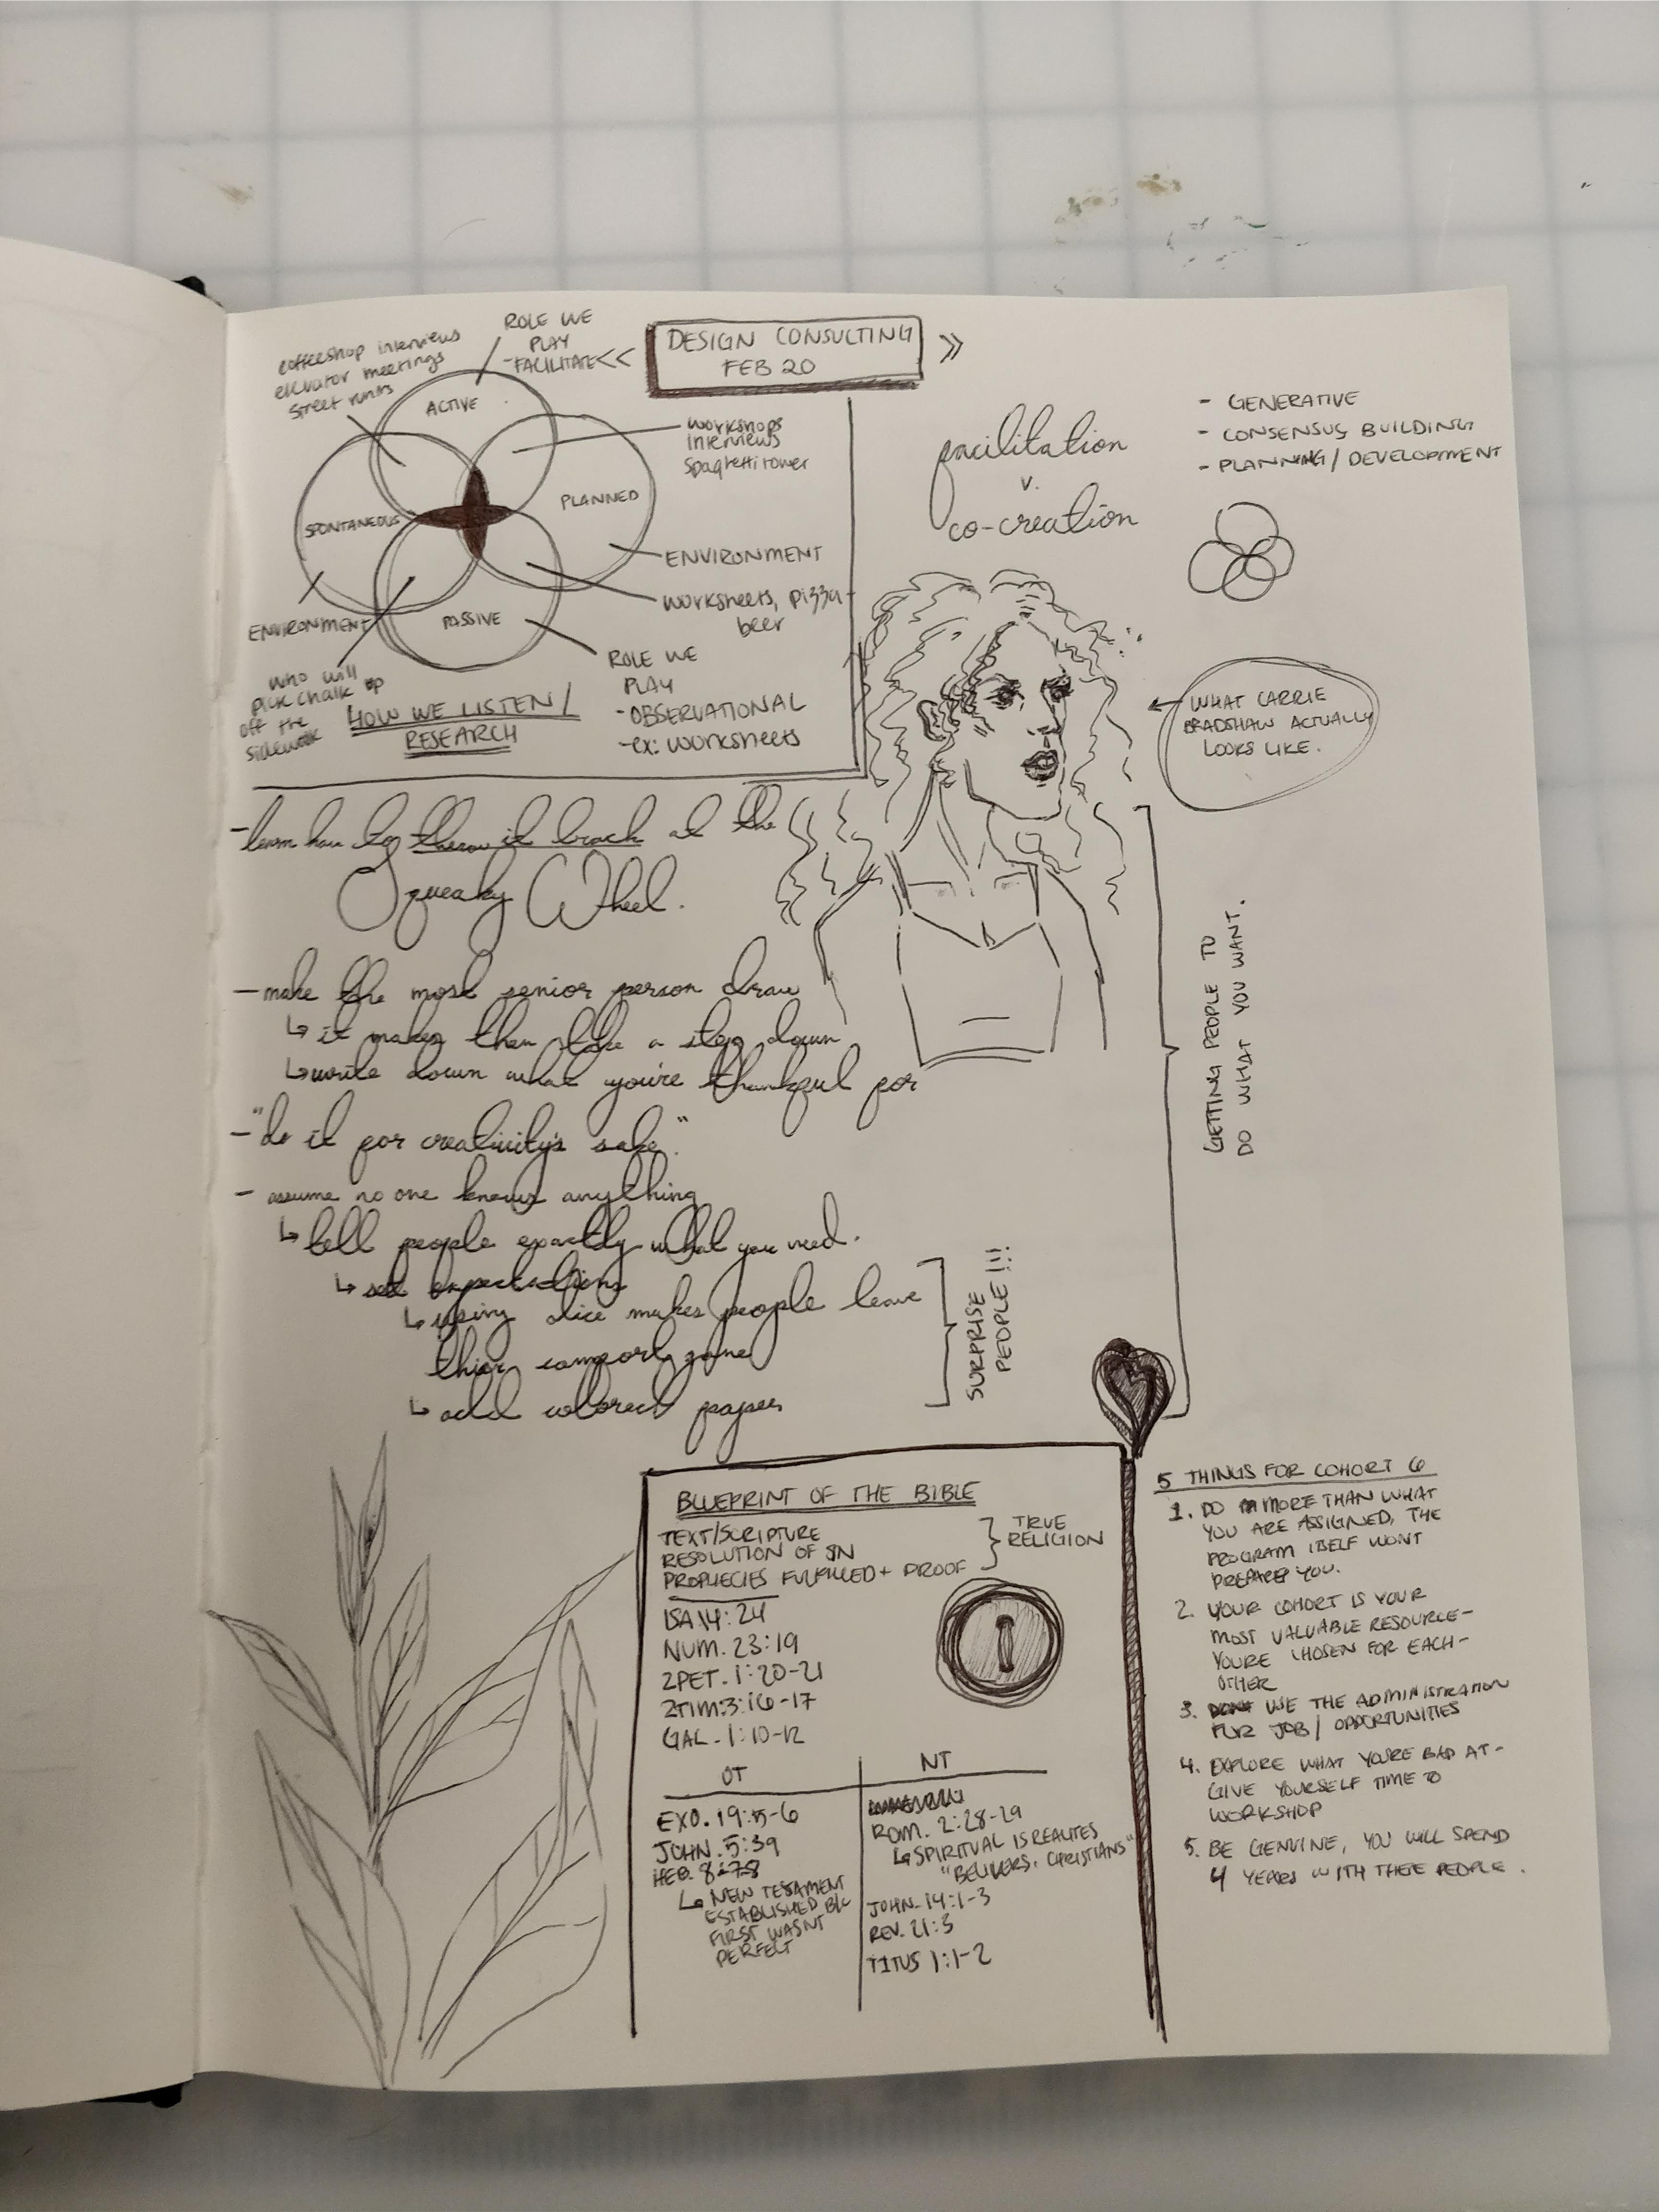 DESIGN CONSULTING
FEB 20
<<
>>
coffeeshop interviews
elevator meetings
street runs
ROLE WE
PLAY
-FACILITATE
ACTIVE
workshops
interviews
spaghetti tower
PLANNED
SPONTANEOUS
ENVIRONMENT
worksheets, pizza
beer
ENVIRONMENT
PASSIVE
ROLE WE
PLAY
-OBSERVATIONAL
-ex: worksheets
who will
pick chalk up
off the
sidewalk
HOW WE LISTEN/
RESEARCH
facilitation
v.
co-creation
- GENERATIVE
- CONSENSUS BUILDING
- PLANNING/DEVELOPMENT
WHAT CARRIE
BRADSHAW ACTUALLY
LOOKS LIKE.
-learn how to throw it back at the
Squeaky Wheel.
-make the most senior person draw
↳ it makes them take a step down
↳ write down what you're thankful for
-"do it for creativity's sake."
- assume no one knows anything
↳ tell people exactly what you need.
↳ set expectations
↳ using dice makes people leave
thier comfort zone
↳ add colored paper
SURPRISE
PEOPLE!!!
GETTING PEOPLE TO
DO WHAT YOU WANT.
BLUEPRINT OF THE BIBLE
TEXT/SCRIPTURE
RESOLUTION OF SIN
PROPHECIES FULFILLED + PROOF
TRUE
RELIGION
ISA 14:24
NUM. 23:19
2PET. 1:20-21
2TIM:3:16-17
GAL. 1:10-12
OT
EXO. 19:5-6
JOHN. 5:39
HEB. 8:7-8
↳ NEW TESTAMENT
ESTABLISHED B/C
FIRST WASNT
PERFECT
NT
ROM. 2:28-29
↳ SPIRITUAL ISREALITES
"BELIVERS, CHRISTIANS"
JOHN. 14:1-3
REV. 21:3
TITUS 1:1-2
5 THINGS FOR COHORT 6
1. DO MORE THAN WHAT
YOU ARE ASSIGNED, THE
PROGRAM ITSELF WONT
PREPARE YOU.
2. YOUR COHORT IS YOUR
MOST VALUABLE RESOURCE-
YOURE CHOSEN FOR EACH-
OTHER
3. DONT USE THE ADMINISTRATION
FOR JOB/ OPPORTUNITIES
4. EXPLORE WHAT YOURE BAD AT-
GIVE YOURSELF TIME TO
WORKSHOP
5. BE GENUINE, YOU WILL SPEND
4 YEARS WITH THESE PEOPLE.